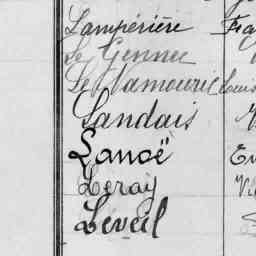 Lampérière Fra
Le Gennec
Le Namouric Louis
Landais
Lanoë
Leray
Léveil